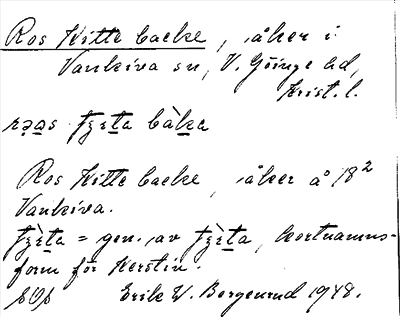 Ros Kitte backe, åker i
Vankiva sn, V. Göinge hd,
Krist. l.
Ros Kitte backe, åker å 18²
Vankiva.
= gen. av , kortnamns-
form för Kerstin.
Erik W. Borgenrud 1948.